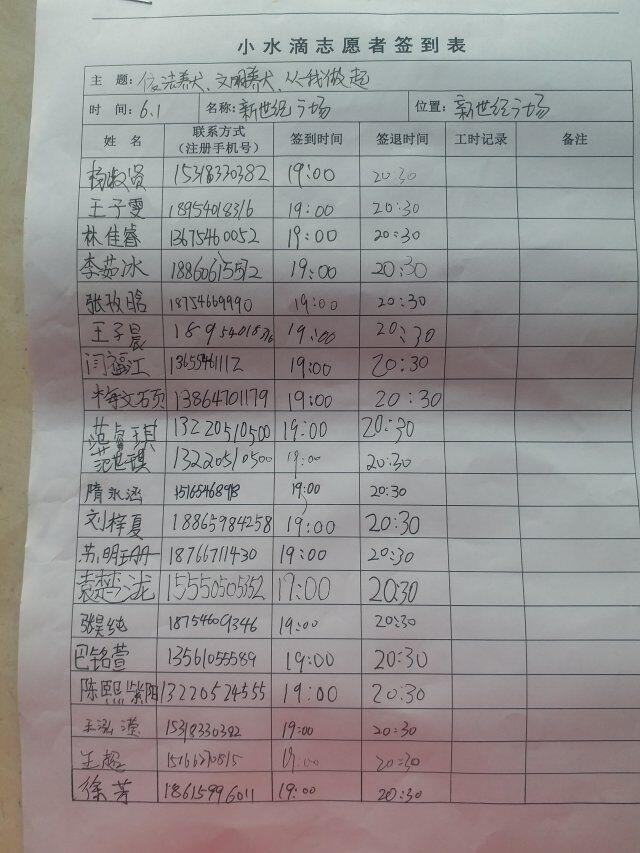 小水滴志愿者签到表
主 题：依法养犬、文明养犬、从我做起
时 间：6.1 名称：新世纪广场 位置：新世纪广场
姓 名 联系方式（注册手机号） 签到时间 签退时间 工时记录 备注
杨淑贤 15318330382 19:00 20:30
王子雯 18954018316 19:00 20:30
林佳睿 13675460052 19:00 20:30
李茹冰 18860615572 19:00 20:30
张玫晗 18754669990 19:00 20:30
王子晨 19:00 20:30
闫福江 13655461112 19:00 20:30
13864701179 19:00 20:30
范睿琪 13220510500 19:00 20:30
范世琪 13220510500 19:00 20:30
隋永涵 19:00 20:30
刘梓夏 18865984258 19:00 20:30
苏明珊 18766711430 19:00 20:30
袁楚泷 15550505352 19:00 20:30
张昊纯 18754609346 19:00 20:30
巴铭萱 13561055589 19:00 20:30
陈熙紫阳 13220524555 19:00 20:30
王泓滢 15318330382 19:00 20:30
王超 15166270815 19:00 20:30
徐芳 18615996011 19:00 20:30